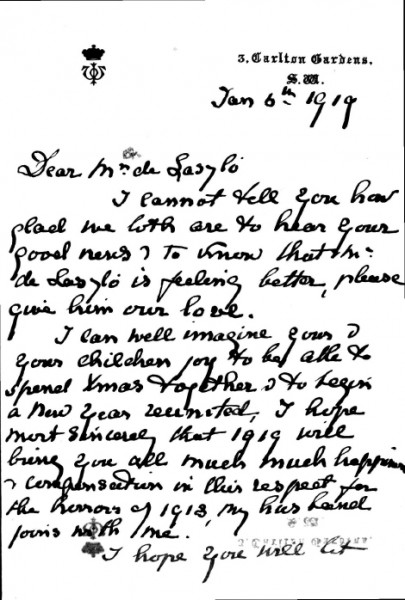 3. Carlton Gardens.
S.W.
Jan 6th 1919
Dear Mrs de Laszlo
I cannot tell you how
glad we both are to hear your
good news & to know that Mr
de Laszló is feeling better, please
give him our love.
I can well imagine yours &
your children joy to be able to
spend Xmas together & to begin
a New Year reunited, I hope
most sincerely that 1919 will
bring you all much much happiness
& compensation in this respect for
the horrors of 1918, my husband
joins with me.
I hope you will let